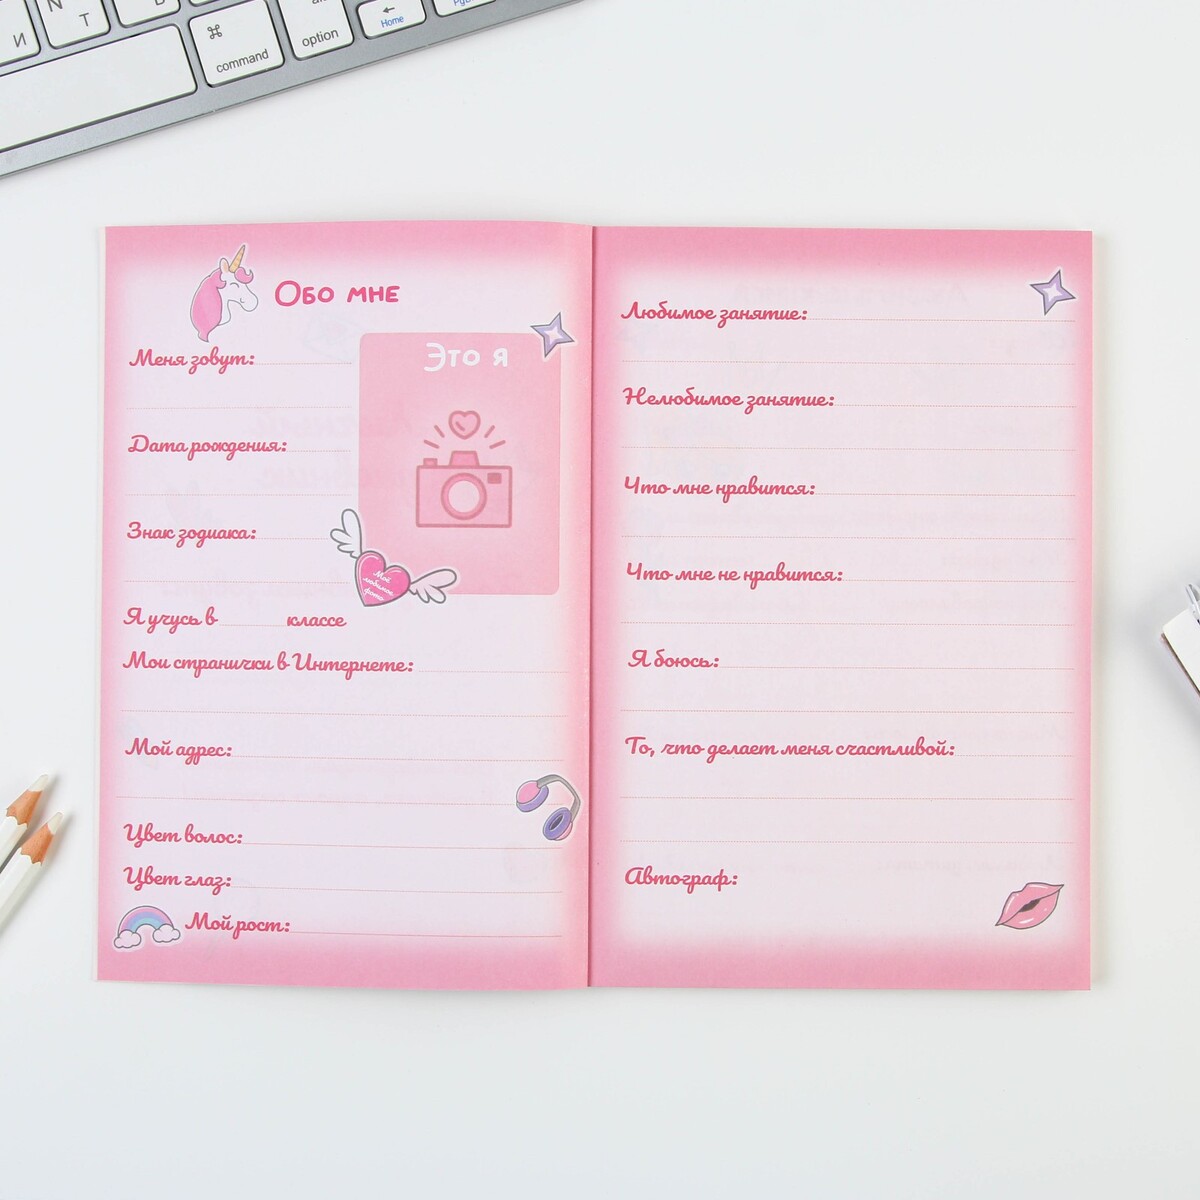 И
Т
Ь
⌘
command
alt
option
Home
PgUp
Обо мне
Это я
Меня зовут:
Дата рождения:
Знак зодиака:
Мой
любимое
фото
Я учусь в ______ классе
Мои странички в Интернете:
Мой адрес:
Цвет волос:
Цвет глаз:
Мой рост:
Любимое занятие:
Нелюбимое занятие:
Что мне нравится:
Что мне не нравится:
Я боюсь:
То, что делает меня счастливой:
Автограф: